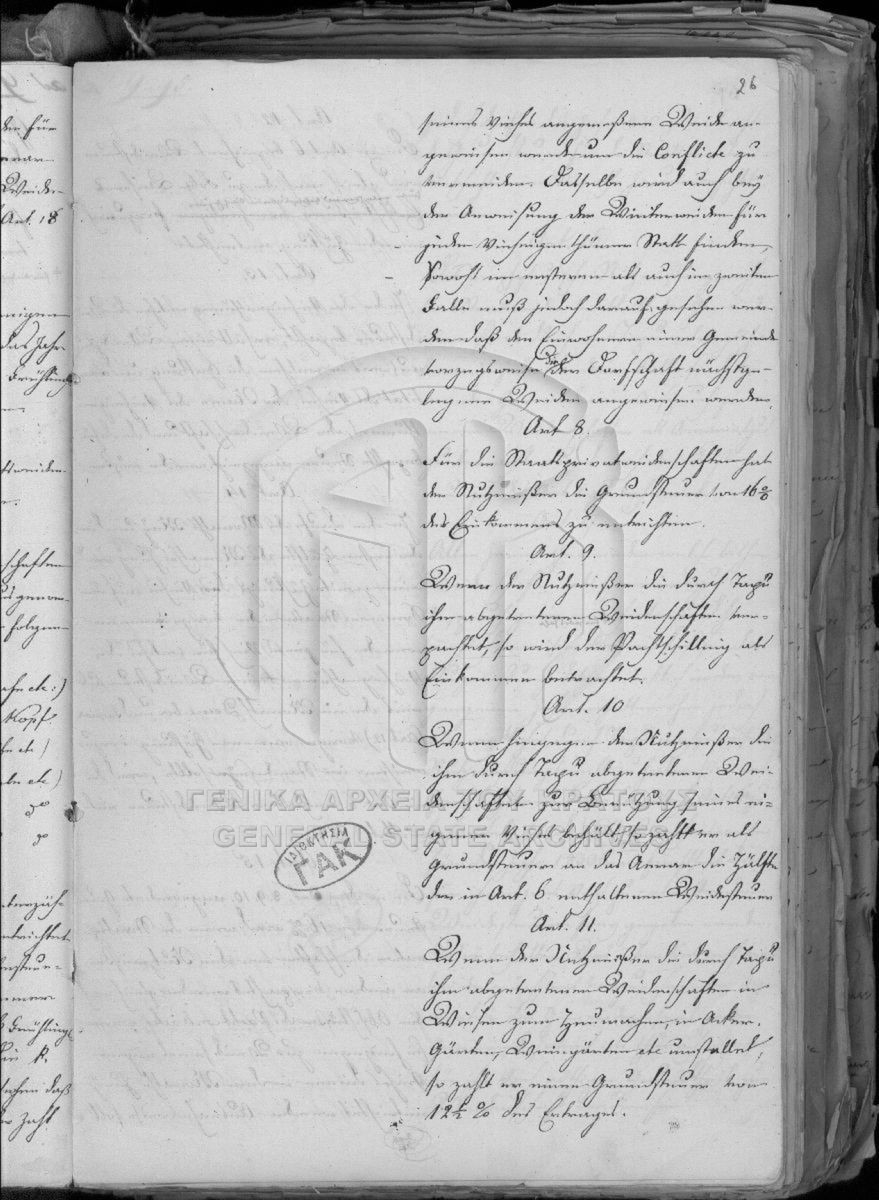 26
seines Viehes angemeßene Weide an-
gewiesen werde um die Conflicte zu
vermeiden. Dasselbe wird auch bey
der Anweisung der Winterweiden für
jeden Vieheigenthümer Statt finden,
Sowohl im ersteren als auch im zweiten
Falle muß jedoch darauf gesehen wer-
den daß den Einwohnern einer Gemeinde
vorzugsweise die der Dorfschaft nächstge-
legenen Weiden angewiesen werden.
Art 8.
Für die Staatsprivatweidenschaften hat
der Nutznießer die Grundsteuer von 16 %
des Einkommens zu entrichten.
Art. 9.
Wenn der Nutznießer die durch Tapu
ihm abgetretenen Weidenschaften ver-
pachtet, so wird der Pachtschilling als
Einkommen betrachtet.
Art. 10
Wenn hingegen der Nutznießer die
ihm durch Tapu abgetretenen Wei-
denschaften zur Benützung seines ei-
genen Viehes behält so zahlt er als
Grundsteuer an das Aerar die Hälfte
der in Art. 6 enthaltenen Weidesteuer
Art. 11.
Wenn der Nutznießer die durch Tapu
ihm abgetretenen Weidenschaften in
Wiesen zum Heumachen, in Aeker,
Gärten, Weingärten etc umstaltet,
so zahlt er einen Grundsteuer von
12½ % des Ertrages.
ΓΕΝΙΚΑ ΑΡΧΕΙΑ ΤΟΥ ΚΡΑΤΟΥΣ
GENERAL STATE ARCHIVES
ΙΔΙΟΚΤΗΣΙΑ
ΓΑΚ
den für
Weiden
Art. 18
das Jahr
Frühling
schaften
folgen
etc:)
Kopf
etc)
etc)
entrichtet
Frühling
daß
zahlt